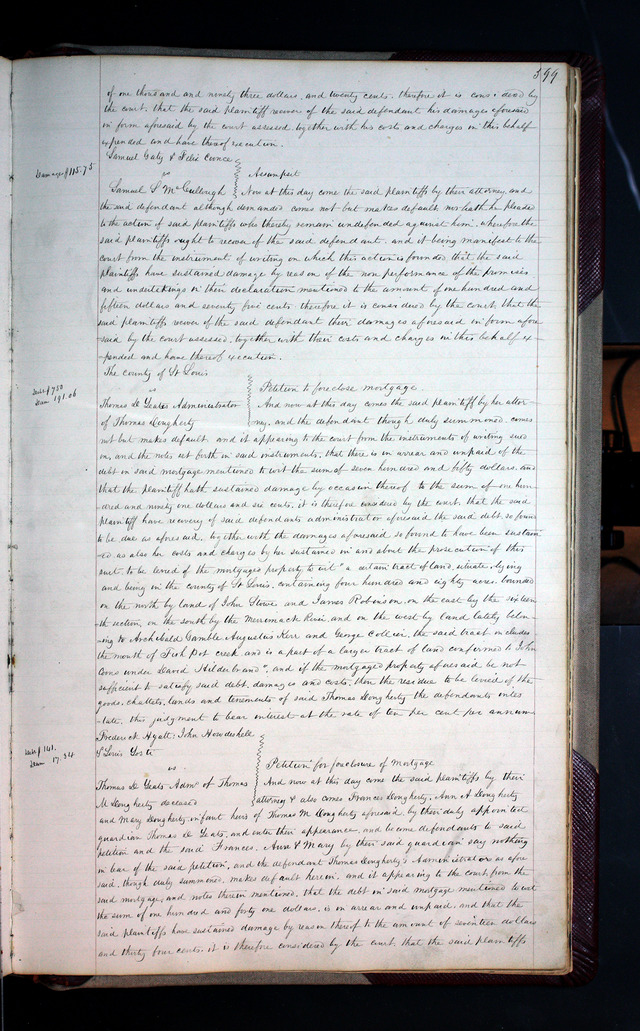 399
of one thousand and ninety three dollars, and twenty cents. therefore it is considered by
the court, that the said plaintiff recover of the said defendant his damages aforesaid
in form aforesaid by the court assessed, together with his costs and charges in this behalf
expended and have thereof execution.
Samuel Gaty & Felix
Damage $115.75
vs
Assumpsit
Samuel S McCullough Now at this day come the said plaintiffs by their attorney, and
the said defendant although demanded comes not but makes default, nor hath he pleaded
to the action of said plaintiffs who thereby remain undefended against him, wherefore the
said plaintiffs ought to recover of the said defendant. and it being manifest to the
court from the instrument of writing on which this action is founded that the said
plaintiffs have sustained damage by reason of the non performance of the promises
and undertakings in their declaration mentioned to the amount of one hundred and
fifteen dollars and seventy five cents. therefore it is considered by the court, that the
said plaintiffs recover of the said defendant their damages aforesaid in form afore
said by the court assessed, together with their costs and charges in this behalf ex-
pended and have thereof execution.
The County of St Louis
Debt $750
Dam 191.06
vs
Petition to foreclose mortgage.
Thomas D Yeats Administrator And now at this day comes the said plaintiff by her attor
of Thomas Dougherty ney, and the defendant though duly summoned, comes
not but makes default. and it appearing to the court from the instruments of writing sued
on, and the notes set forth in said instruments, that there is in arrear and unpaid of the
debt in said mortgage mentioned to wit the sum of seven hundred and fifty dollars, and
that the plaintiff hath sustained damage by occasion thereof to the sum of one hun
dred and ninety one dollars and six cents, it is therefore considered by the court, that the said
plaintiff have recovery of said defendant administrator aforesaid the said debt, so found
to be due as aforesaid, together with the damages aforesaid so found to have been sustain
ed. as also her costs and charges by her sustained in and about the prosecution of this
suit, to be levied of the mortgaged property to wit "a certain tract of land, situate, lying
and being in the county of St Louis, containing four hundred and eighty acres, bounded
on the north by land of John Stowe and James Robinson, on the east by the sixteen
th section, on the south by the Merrimack River, and on the west by land lately belon-
-ging to Archibald Gamble Augustus Kerr and George Collier, the said tract includes
the mouth of Fish Pot creek and is a part of a larger tract of land confirmed to John
Cono under David Hilderbrand", and if the mortgaged property aforesaid be not
sufficient to satisfy said debt, damages and costs, then the residue to be levied of the
goods, chattels, lands and tenements of said Thomas Dougherty the defendants intes
-tate. this judgment to bear interest at the rate of ten per cent per annum
Frederick Hyatt: John Howdeshell
Debt $141.
Dam 17.34
& Louis
vs
Petition for foreclosure of Mortgage
Thomas D Yeats Admr of Thomas And now at this day come the said plaintiffs by their
M Dougherty deceased attorney & also comes Frances Dougherty, Ann A Dougherty
and Mary Dougherty infant heirs of Thomas M Dougherty aforesaid, by their duly appointed
guardian Thomas D Yeats, and enter their appearance, and become defendants to said
petition and the said Frances, Ann & Mary by their said guardian say nothing
in bar of the said petition, and the defendant Thomas Dougherty's Administrator as afore
said, though duly summoned, makes default herein, and it appearing to the court, from the
said mortgage, and notes therein mentioned, that the debt in said mortgage mentioned to wit
the sum of one hundred and forty one dollars, is in arrear and unpaid, and that the
said plaintiffs have sustained damage by reason thereof to the amount of seventeen dollars
and thirty four cents. it is therefore considered by the court, that the said plaintiffs